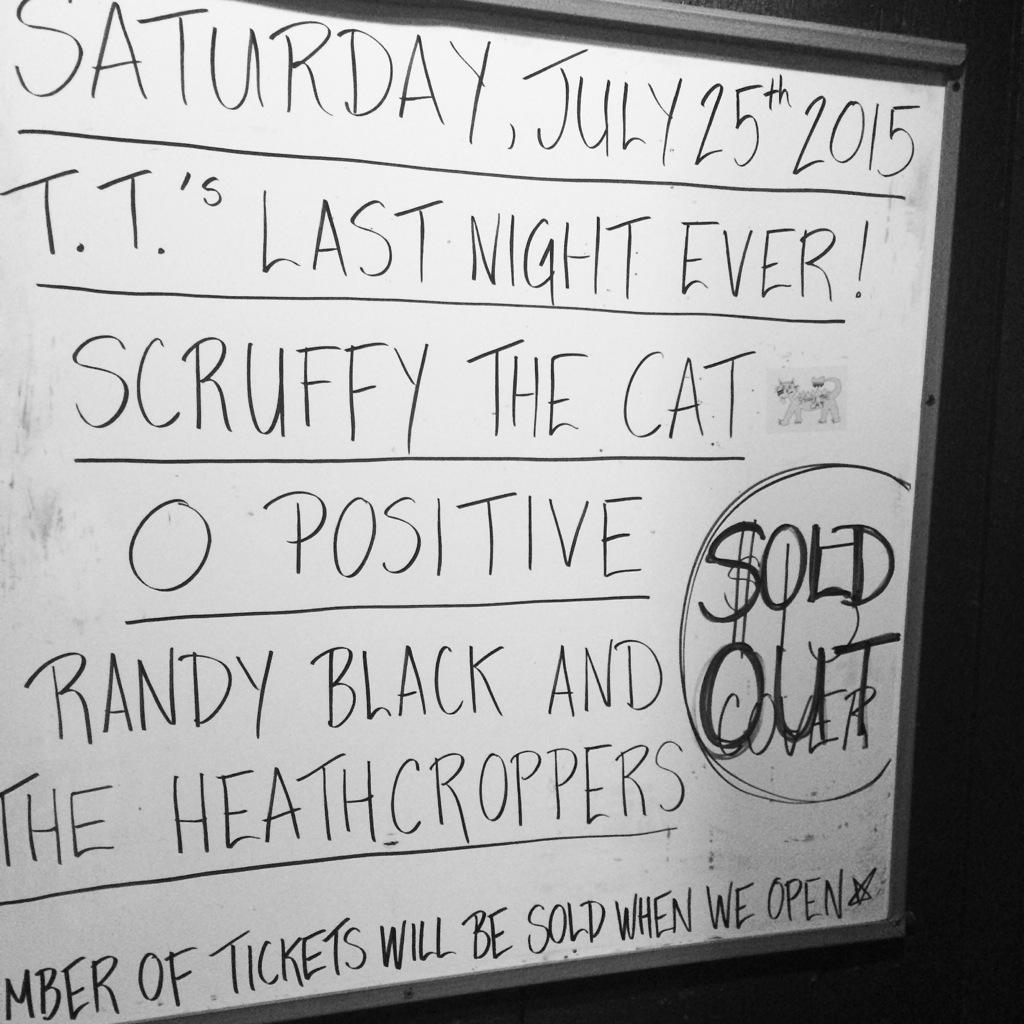 SATURDAY, JULY 25th 2015
T.T.'s LAST NIGHT EVER!
SCRUFFY THE CAT
O POSITIVE
RANDY BLACK AND
THE HEATHCROPPERS
SOLD
OUT
COVER
MBER OF TICKETS WILL BE SOLD WHEN WE OPEN